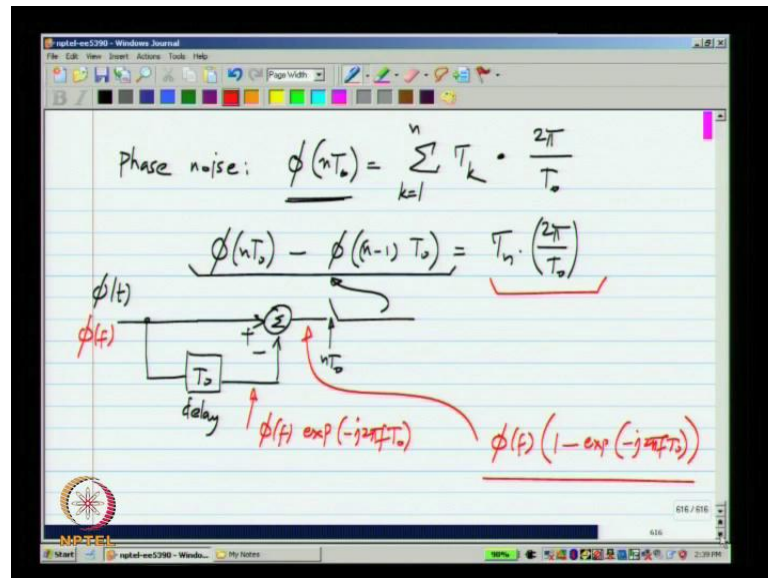 nptel-ee5390 - Windows Journal
File Edit View Insert Actions Tools Help
Page Width
B I
Phase noise: ϕ(nT₀) = ∑_{k=1}^{n} T_k · 2π/T₀
ϕ(nT₀) − ϕ((n-1) T₀) = T_n · (2π/T₀)
ϕ(t)
ϕ(f)
+ Σ
−
nT₀
T₀
delay
ϕ(f) exp(-j2πfT₀)
ϕ(f) (1 − exp(-j2πfT₀))
616 / 616
616
NPTEL
Start nptel-ee5390 - Windo... My Notes 90% 2:39 PM